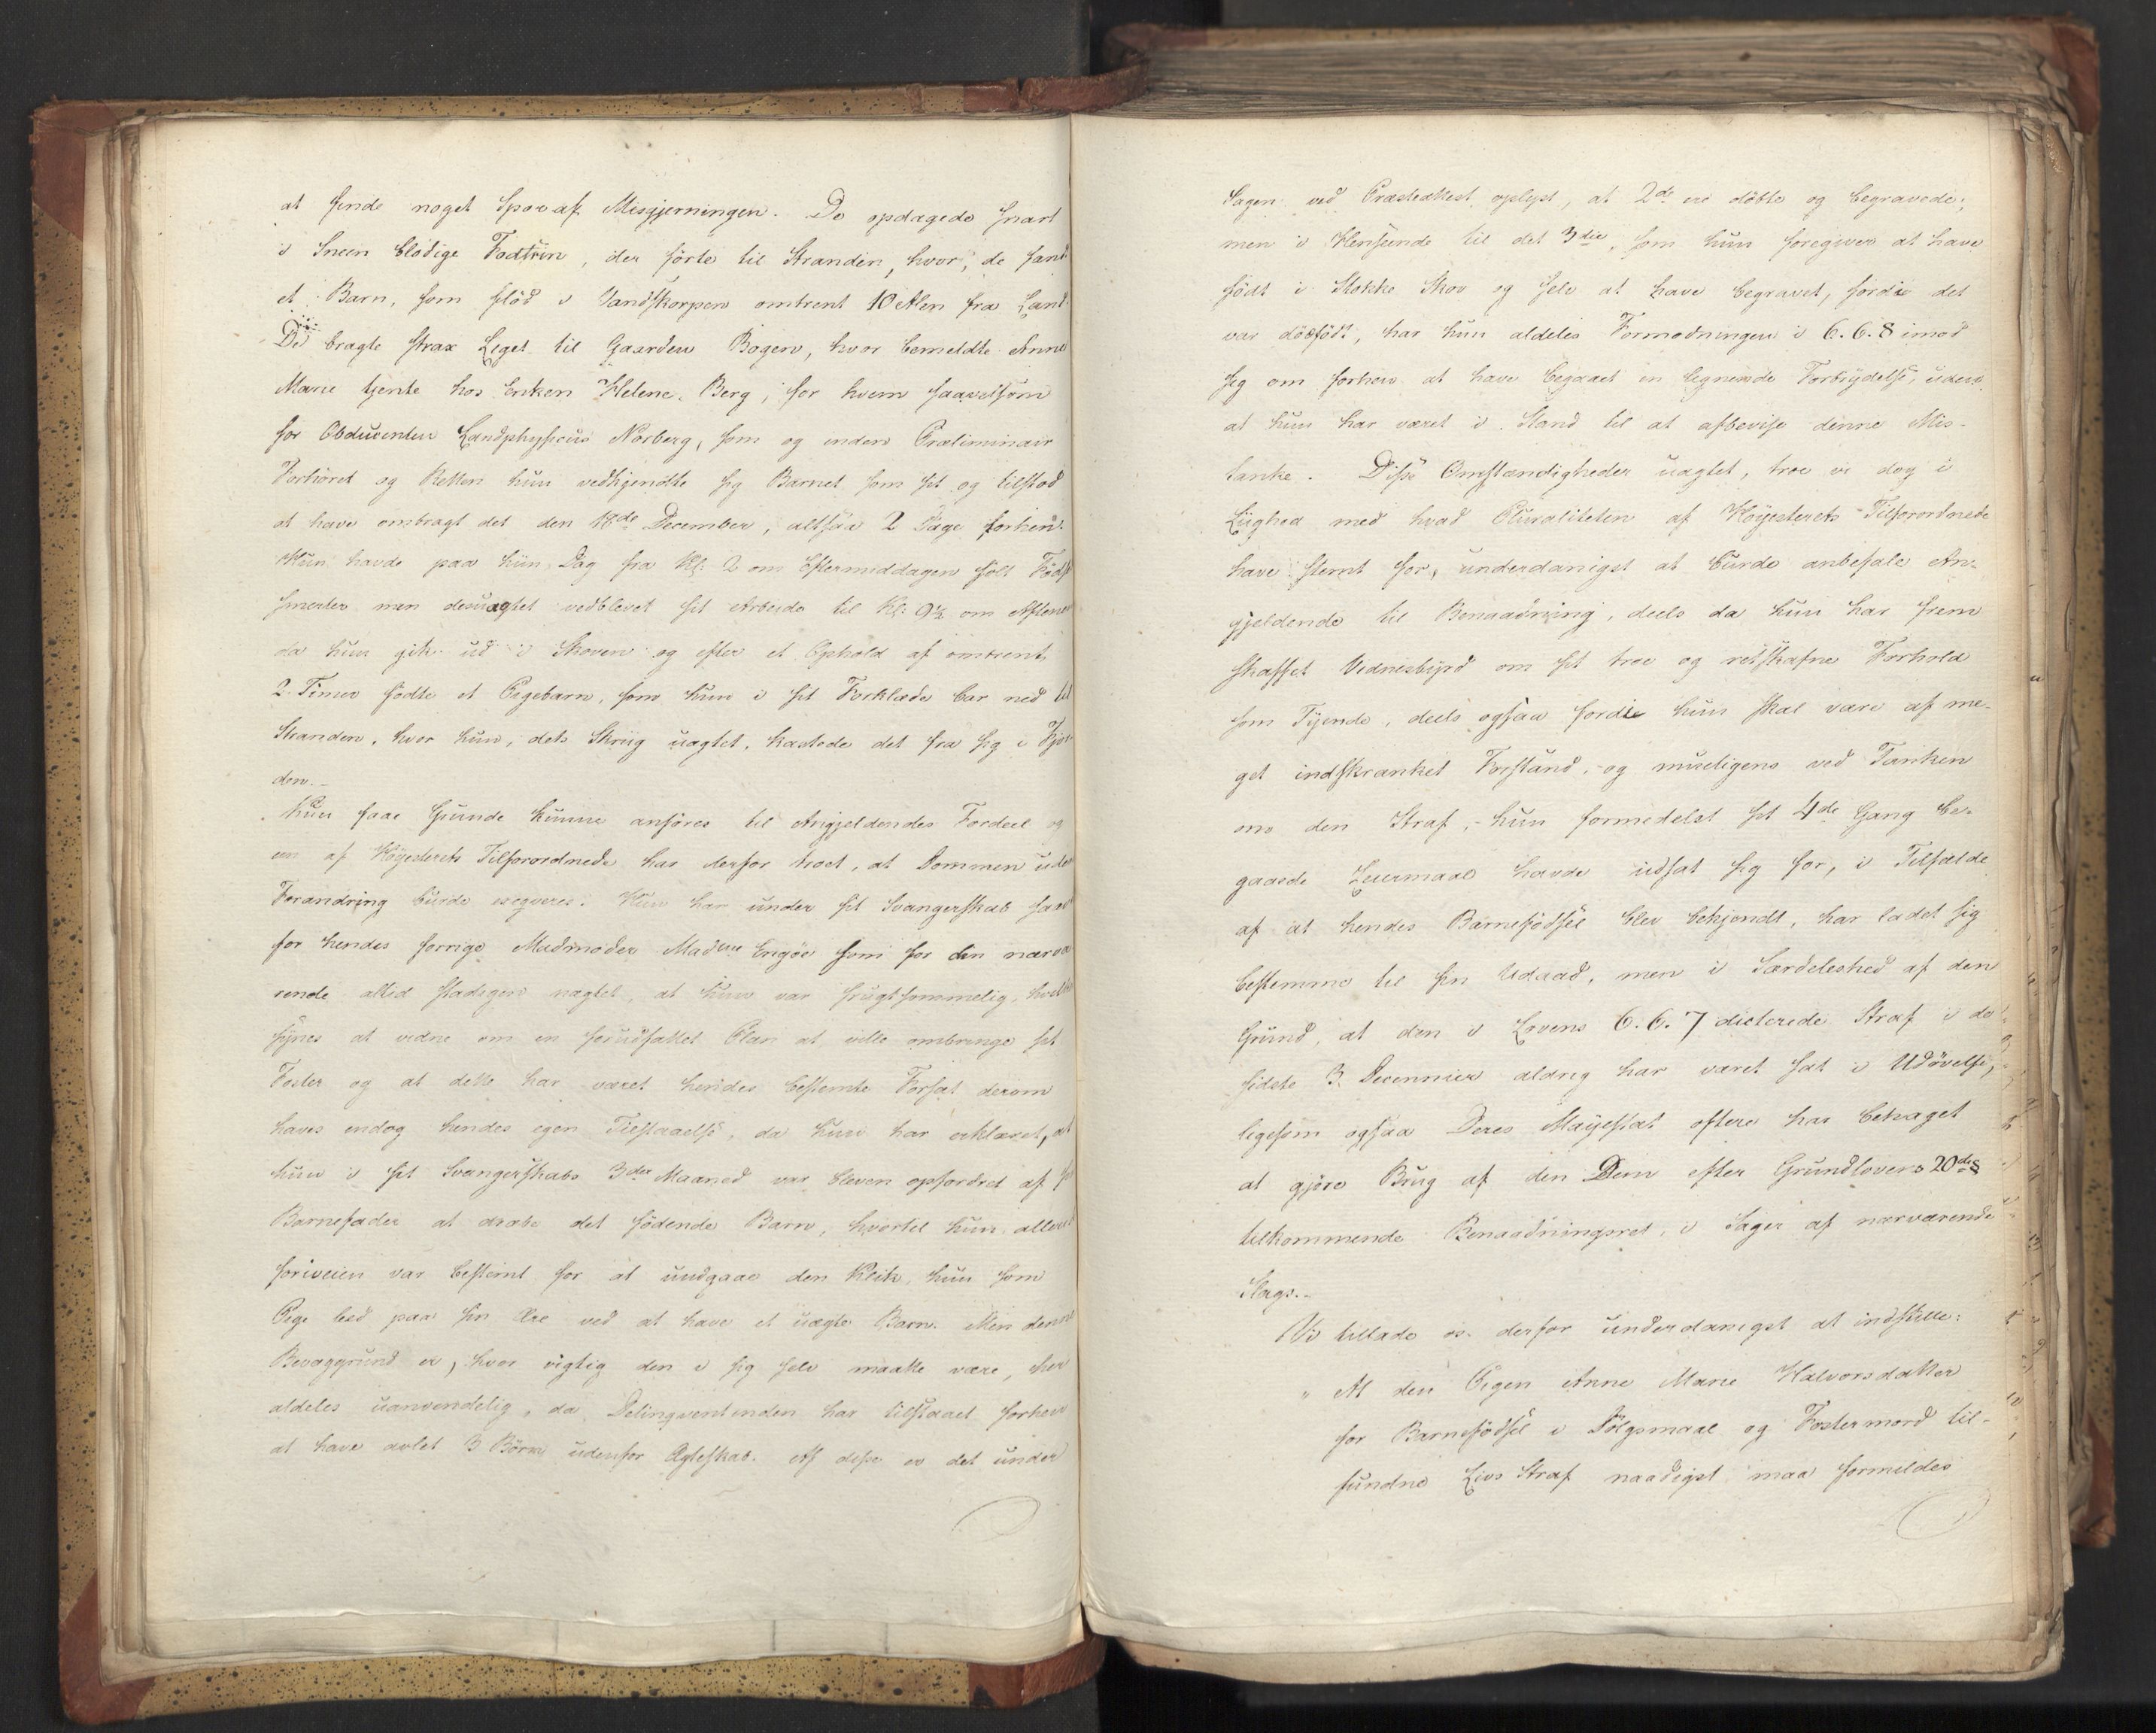 at finde noget Spor af Misgjerningen. De opdagede snart
i Sneen blodige Fodtrin, der førte til Stranden, hvor, de fandt
et Barn, som flød i Vandskorpen omtrent 10 Alen fra Land.
De bragte strax Liget til Gaarden Bogen, hvor bemeldte Anne
Marie tjente hos Enken Helene Berg, for hvem saavelsom
for Obducenten Landphysicus Norberg, som og inden Præliminair
Forhöret og Retten hun vedkjendte sig Barnet som sit og tilstod
at have ombragt det den 18de December, altsaa 2 Dage forhen.
Hun havde paa hün Dag fra Kl: 2 om Eftermiddagen følt Föds
smerter men desuagtet vedblevet sit Arbeide til Kl: 9½ om Aftenen
da hun gik ud i Skoven og efter et Ophold af omtrent
2 Timer födte et Pigebarn, som hun i sit Forklæde bar ned til
Stranden, hvor hun, dets Skrig uagtet, kastede det fra sig i Fjor-
den.-
Kun faae Grunde kunne anføres til Angjeldendes Fordeel og
een af Höyesterets Tilforordnede har derfor troet, at Dommen uden
Forandring burde exeqveres. Hun har under sit Svangerskab saavel
for hendes forrige Madmoder Madme Engöe som for den nærvæ
rende altid stadigen nægtet, at hun var frugtsommelig, hvilket
synes at vidne om en forudfattet Plan at ville ombringe sit
Foster og at dette har været hendes bestemte Forsæt derom
haves endog hendes egen Tilstaaelse, da hun har erklæret, at
hun i sit Svangerskabs 3die Maaned var bleven opfordret af sin
Barnefader at dræbe det födende Barn, hvortil hun allerede
foriveien var bestemt for at undgaae den Plet, hun som
Pige led paa sin Ære ved at have et uægte Barn. Men denne
Bevæggrund er, hvor vigtig den i sig selv maatte være, her
aldeles uanvendelig, da Delinqventinden har tilstaaet forhen
at have avlet 3 Börn udenfor Ægteskab. Af disse er det under
Sagen ved Præsteattest oplyst, at 2de ere döbte og begravede;
men i Henseende til det 3die, som hun foregiver at have
födt i Stokke Skov og selv at have begravet, fordie det
var dödfödt, har hun aldeles Formodningen i 6.6.8 imod
sig om forhen at have begaaet en lignende Forbrydelse, uden
at hun har været i Stand til at afbevise denne Mis-
tanke. Disse Omstændigheder uagtet, troe vi dog i
Liighed med hvad Pluraliteten af Höyesterets Tilforordnede
have stemt for, underdanigst at burde anbefale An-
gjeldende til Benaadning, deels da hun har frem
skaffet Vidnesbyrd om sit troe og retskafne Forhold
som Tyende, deels ogsaa fordie hun skal være af me-
get indskrænket Forstand, og mueligens ved Tanken
om den Straf, hun formedelst sit 4de Gang be-
gaaede Leiermaal havde udsat sig for, i Tilfælde
af at hendes Barnefödsel blev bekjendt, har ladet sig
bestemme til sin Udaad, men i Særdeleshed af den
Grund, at den i Lovens 6.6.7 dicterede Straf i de
sidste 3 Decennier aldrig har været sat i Udövelse,
ligesom ogsaa Deres Mayestæt oftere har behaget
at gjöre Brug af den Dem efter Grundlovens 20de §
tilkommende Benaadningsret, i Sager af nærværende
Slags.-
Vi tillade os derfor underdanigst at indstille:
" At den Pigen Anne Marie Halvorsdatter
for Barnefödsel i Dölgsmaal og Fostermord til-
fundne Livs Straf naadigst maa formildes